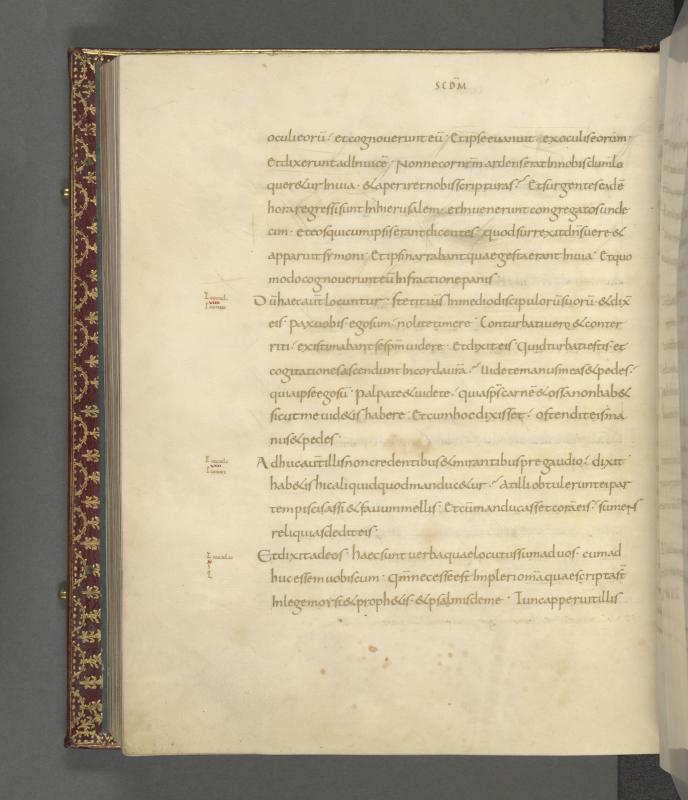 SCDM̄
oculi eorū · et cognoverunt eū · Et ipse euanuit · ex oculis eorum ·
Et dixerunt ad Inuicē · Nonne cor nr̄m ardens erat In nobis dum lo
quer&ur In uia · & aperir& nobis scripturas · Et surgentes eadē
hora regressi sunt In hierusalem · et Inuenerunt congregatos unde
cim · et eos qui cum ipsis erant dicentes · quod surrexit dn̄s uere · &
apparuit symoni · Et ipsi narrabant quae gesta erant In uia · Et quo
modo cognouerunt eū In fractione panis ·
Dū haec aut̄ locuntur · stetit ih̄s In medio discipulorū suorū · & dix̄
eis · pax uobis · ego sum · nolite timere · Conturbati uero & conter
riti · existimabant se sp̄m uidere · Et dixit eis · Quid turbati estis · et
cogitationes ascendunt In corda ur̄a · Uidete manus meas & pedes ·
quia ipse ego sū · palpate & uidete · quia sp̄s carnē & ossa non hab&
sicut me uid&is habere · Et cum hoc dixisset · ostendit eis ma
nus & pedes ·
Adhuc aut̄ illis non credentibus & mirantibus pre gaudio · dixit ·
hab&is hic aliquid quod manduc&ur · At illi obtulerunt ei par
tem piscis assi & fauum mellis · Et cū manducasset corā eis · sumens
reliquias dedit eis ·
Et dixit ad eos · haec sunt uerba quae locutus sum ad uos · cum ad
huc essem uobiscum · Qm̄ necesse est Impleri om̄a quae scripta st̄
In lege morsi & proph&is · & psalmis de me · Tunc apperuit illis